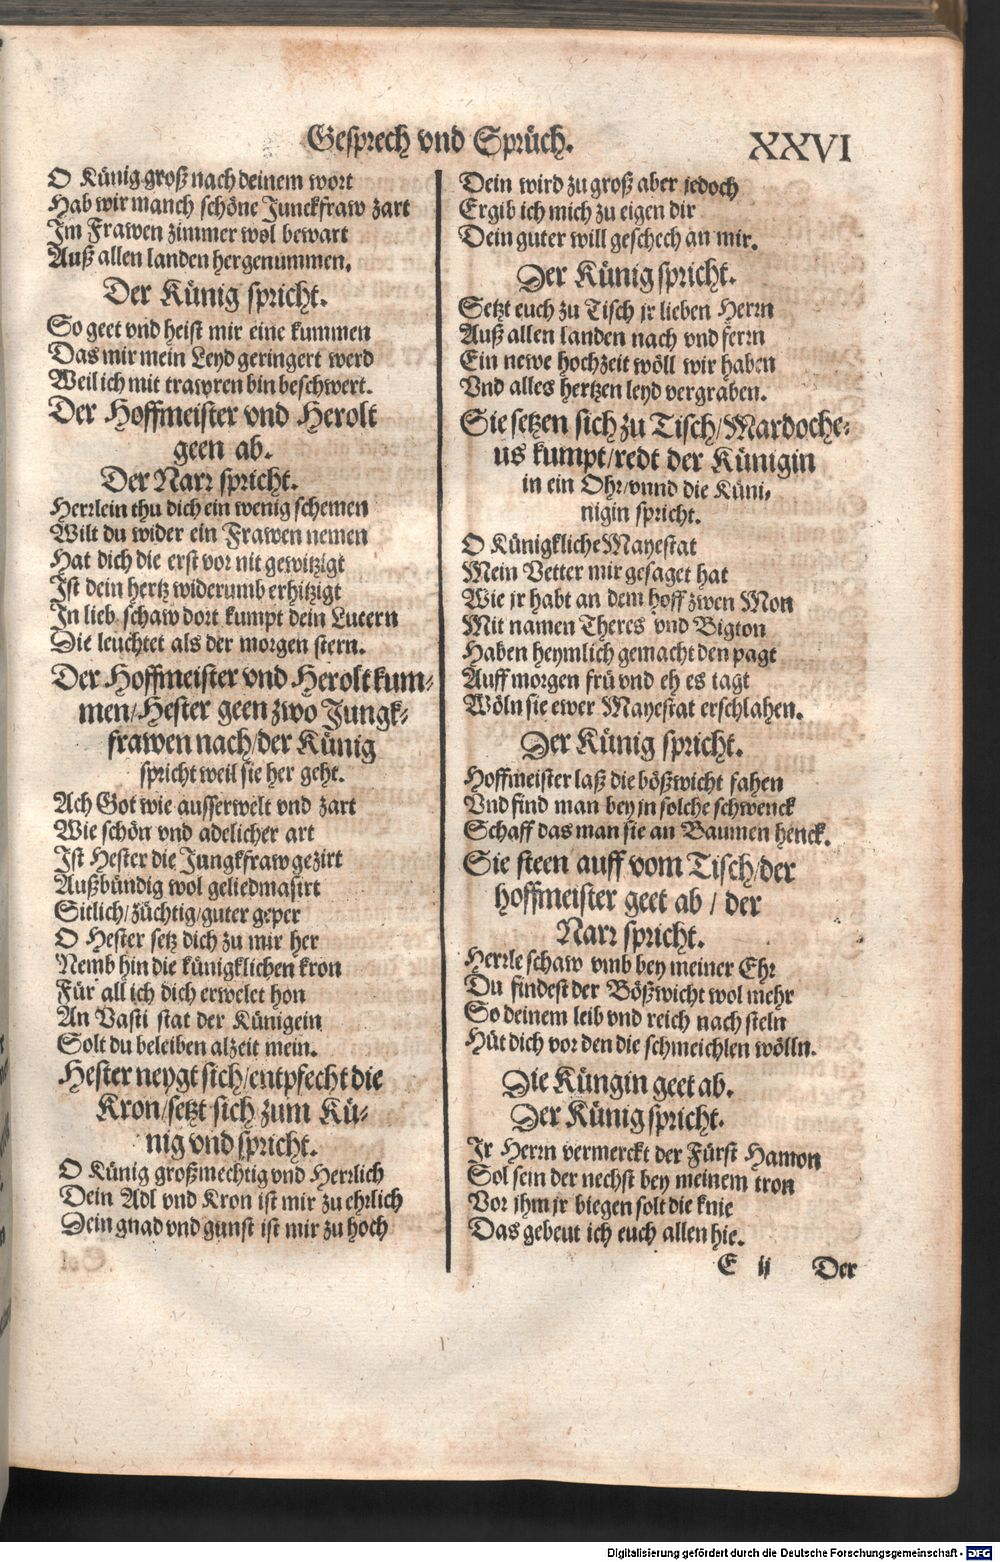 Gesprech vnd Sprüch.
XXVI
O Künig groß nach deinem wort
Hab wir manch schöne Junckfraw zart
Im Frawen zimmer wol bewart
Auß allen landen hergenummen.
Der Künig spricht.
So geet vnd heist mir eine kummen
Das mir mein Leyd geringert werd
Weil ich mit trawren bin beschwert.
Der Hoffmeister vnd Herolt
geen ab.
Der Narr spricht.
Herrlein thu dich ein wenig schemen
Wilt du wider ein Frawen nemen
Hat dich die erst vor nit gewitzigt
Ist dein hertz widerumb erhitzigt
In lieb schaw dort kumpt dein Lucern
Die leuchtet als der morgen stern.
Der Hoffmeister vnd Herolt kum-
men/Hester geen zwo Jungk-
frawen nach/der Künig
spricht weil sie her geht.
Ach Got wie ausserwelt vnd zart
Wie schön vnd adelicher art
Ist Hester die Jungkfraw gezirt
Außbündig wol geliedmasirt
Sitlich/züchtig/guter geper
O Hester setz dich zu mir her
Nemb hin die künigklichen kron
Für all ich dich erwelet hon
An Vasti stat der Künigein
Solt du beleiben alzeit mein.
Hester neygt sich/entpfecht die
Kron/setzt sich zum Kü-
nig vnd spricht.
O Künig großmechtig vnd Herrlich
Dein Adl vnd Kron ist mir zu ehrlich
Dein gnad vnd gunst ist mir zu hoch
Dein wird zu groß aber jedoch
Ergib ich mich zu eigen dir
Dein guter will geschech an mir.
Der Künig spricht.
Setzt euch zu Tisch jr lieben Herrn
Auß allen landen nach vnd ferrn
Ein newe hochzeit wöll wir haben
Vnd alles hertzen leyd vergraben.
Sie setzen sich zu Tisch/Mardoche-
us kumpt/redt der Künigin
in ein Ohr/vnnd die Küni-
nigin spricht.
O Künigkliche Mayestat
Mein Vetter mir gesaget hat
Wie jr habt an dem hoff zwen Mon
Mit namen Theres vnd Bigton
Haben heymlich gemacht den pagt
Auff morgen frü vnd eh es tagt
Wöln sie ewer Mayestat erschlahen.
Der Künig spricht.
Hoffmeister laß die bößwicht fahen
Vnd find man bey jn solche schwenck
Schaff das man sie an Baumen henck.
Sie steen auff vom Tisch/der
hoffmeister geet ab / der
Narr spricht.
Herrle schaw vmb bey meiner Ehr
Du findest der Bößwicht wol mehr
So deinem leib vnd reich nach steln
Hüt dich vor den die schmeichlen wölln.
Die Küngin geet ab.
Der Künig spricht.
Ir Herrn vermerckt der Fürst Hamon
Sol sein der nechst bey meinem tron
Vor jhm jr biegen solt die knie
Das gebeut ich euch allen hie.
E ij Der
Digitalisierung gefördert durch die Deutsche Forschungsgemeinschaft - DFG